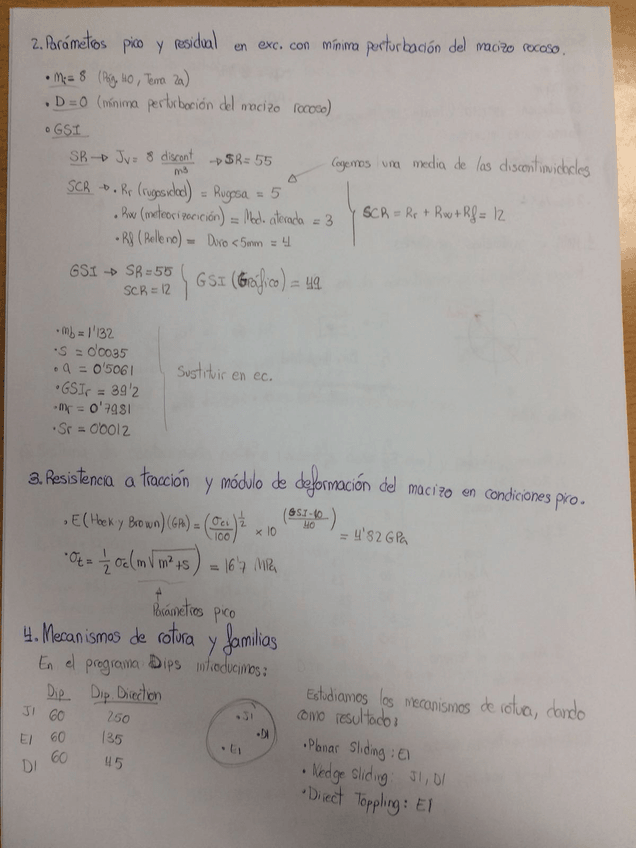 2. Parámetros pico y residual en exc. con mínima perturbación del macizo rocoso.
• mi = 8 (Pág. 40, Tema 2a)
• D = 0 (mínima perturbación del macizo rocoso)
• GSI
SR → Jv = 8 discont/m3 → SR = 55
Cogemos una media de las discontinuidades
SCR → • Rr (rugosidad) = Rugosa = 5
• Rw (meteorización) = Mod. alterada = 3
• Rf (Relleno) = Duro < 5mm = 4
SCR = Rr + Rw + Rf = 12
GSI → SR = 55
SCR = 12
GSI (Gráfico) = 49
• mb = 1'132
• S = 0'0035
• a = 0'5061
• GSIr = 39'2
• mr = 0'7981
• Sr = 0'0012
Sustituir en ec.
3. Resistencia a tracción y módulo de deformación del macizo en condiciones pico.
• E (Hoek y Brown) (GPa) = (σci/100)^1/2 × 10^(GSI-10/40) = 4'82 GPa
• σt = 1/2 σc (m√m²+s) = 16'7 MPa
Parámetros pico
4. Mecanismos de rotura y familias
En el programa Dips introducimos:
Dip Dip Direction
J1 60 250
E1 60 135
D1 60 45
• J1
• D1
• E1
Estudiamos los mecanismos de rotura, dando
como resultado:
• Planar Sliding: E1
• Wedge Sliding: J1, D1
• Direct Toppling: E1